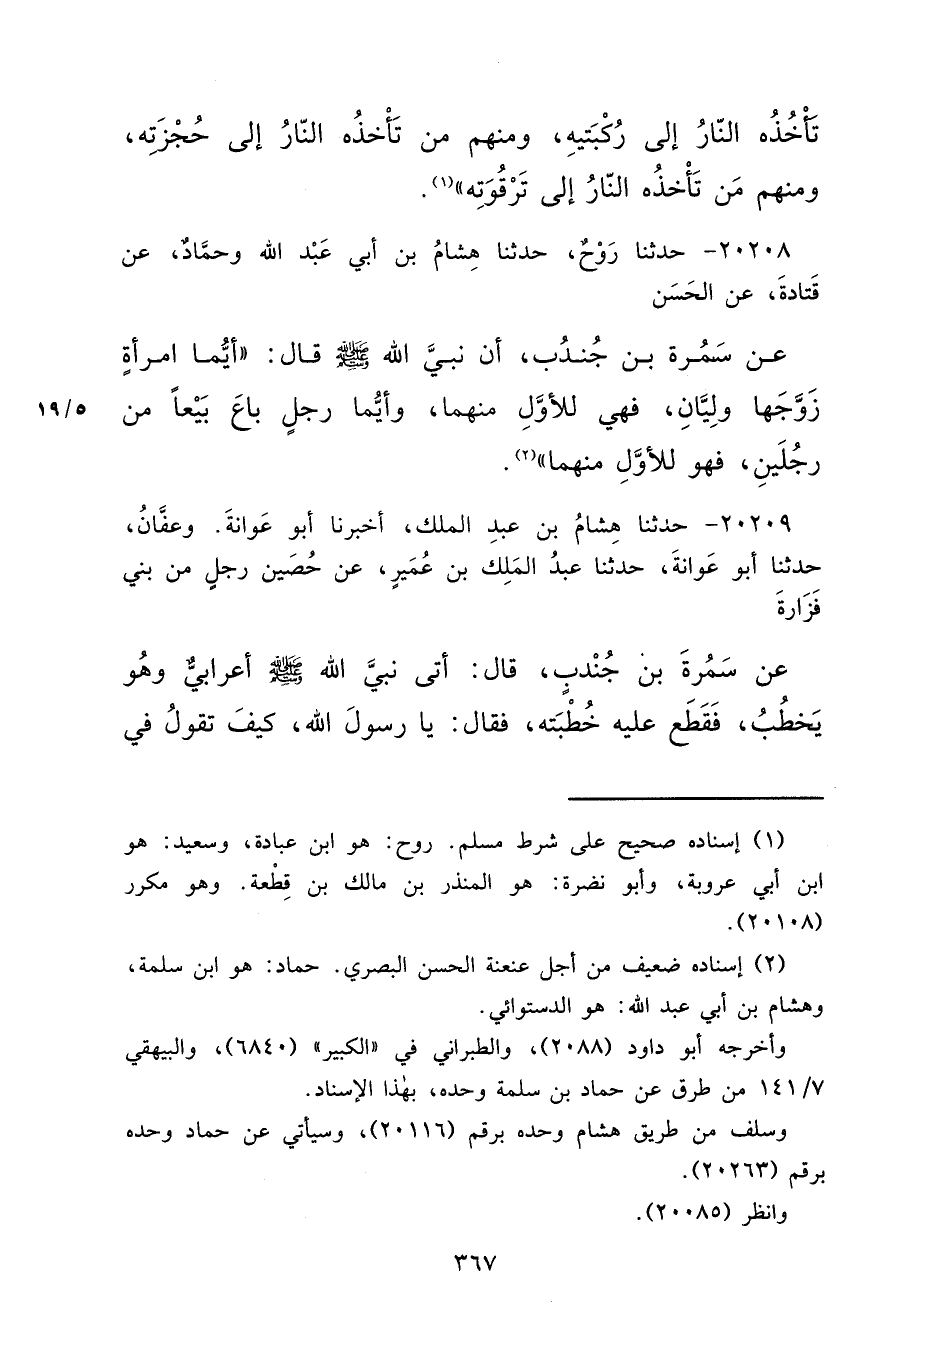 تَأْخُذُه النّارُ إلى رُكْبَتيهِ، ومنهم من تَأْخذُه النّارُ إلى حُجْزَتِه،
ومنهم مَن تَأْخذُه النّارُ إلى تَرْقُوَتِه»(١).
٢٠٢٠٨- حدثنا رَوْحٌ، حدثنا هِشامُ بن أبي عَبْد الله وحمَّادٌ، عن
قَتادةَ، عن الحَسَن
عن سَمُرة بن جُندُب، أن نبيَّ الله ﷺ قال: «أيُّما امرأةٍ
زَوَّجَها ولِيَّانِ، فهي للأوَّلِ منهما، وأيُّما رجلٍ باعَ بَيْعاً من
١٩/٥
رجُلَينِ، فهو للأوَّلِ منهما»(٢).
٢٠٢٠٩- حدثنا هِشامُ بن عبدِ الملك، أخبرنا أبو عَوانةَ. وعفَّانُ،
حدثنا أبو عَوانةَ، حدثنا عبدُ المَلِك بن عُمَيرٍ، عن حُصَين رجلٍ من بني
فَزَارةَ
عن سَمُرةَ بن جُنْدبٍ، قال: أتى نبيَّ الله ﷺ أعرابيٌّ وهُو
يَخطُبُ، فَقَطَع عليه خُطْبَته، فقال: يا رسولَ الله، كيفَ تقولُ في
(١) إسناده صحيح على شرط مسلم. روح: هو ابن عبادة، وسعيد: هو
ابن أبي عروبة، وأبو نضرة: هو المنذر بن مالك بن قِطْعة. وهو مكرر
(٢٠١٠٨).
(٢) إسناده ضعيف من أجل عنعنة الحسن البصري. حماد: هو ابن سلمة،
وهشام بن أبي عبد الله: هو الدستوائي.
وأخرجه أبو داود (٢٠٨٨)، والطبراني في «الكبير» (٦٨٤٠)، والبيهقي
١٤١/٧ من طرق عن حماد بن سلمة وحده، بهٰذا الإسناد.
وسلف من طريق هشام وحده برقم (٢٠١١٦)، وسيأتي عن حماد وحده
برقم (٢٠٢٦٣).
وانظر (٢٠٠٨٥).
٣٦٧